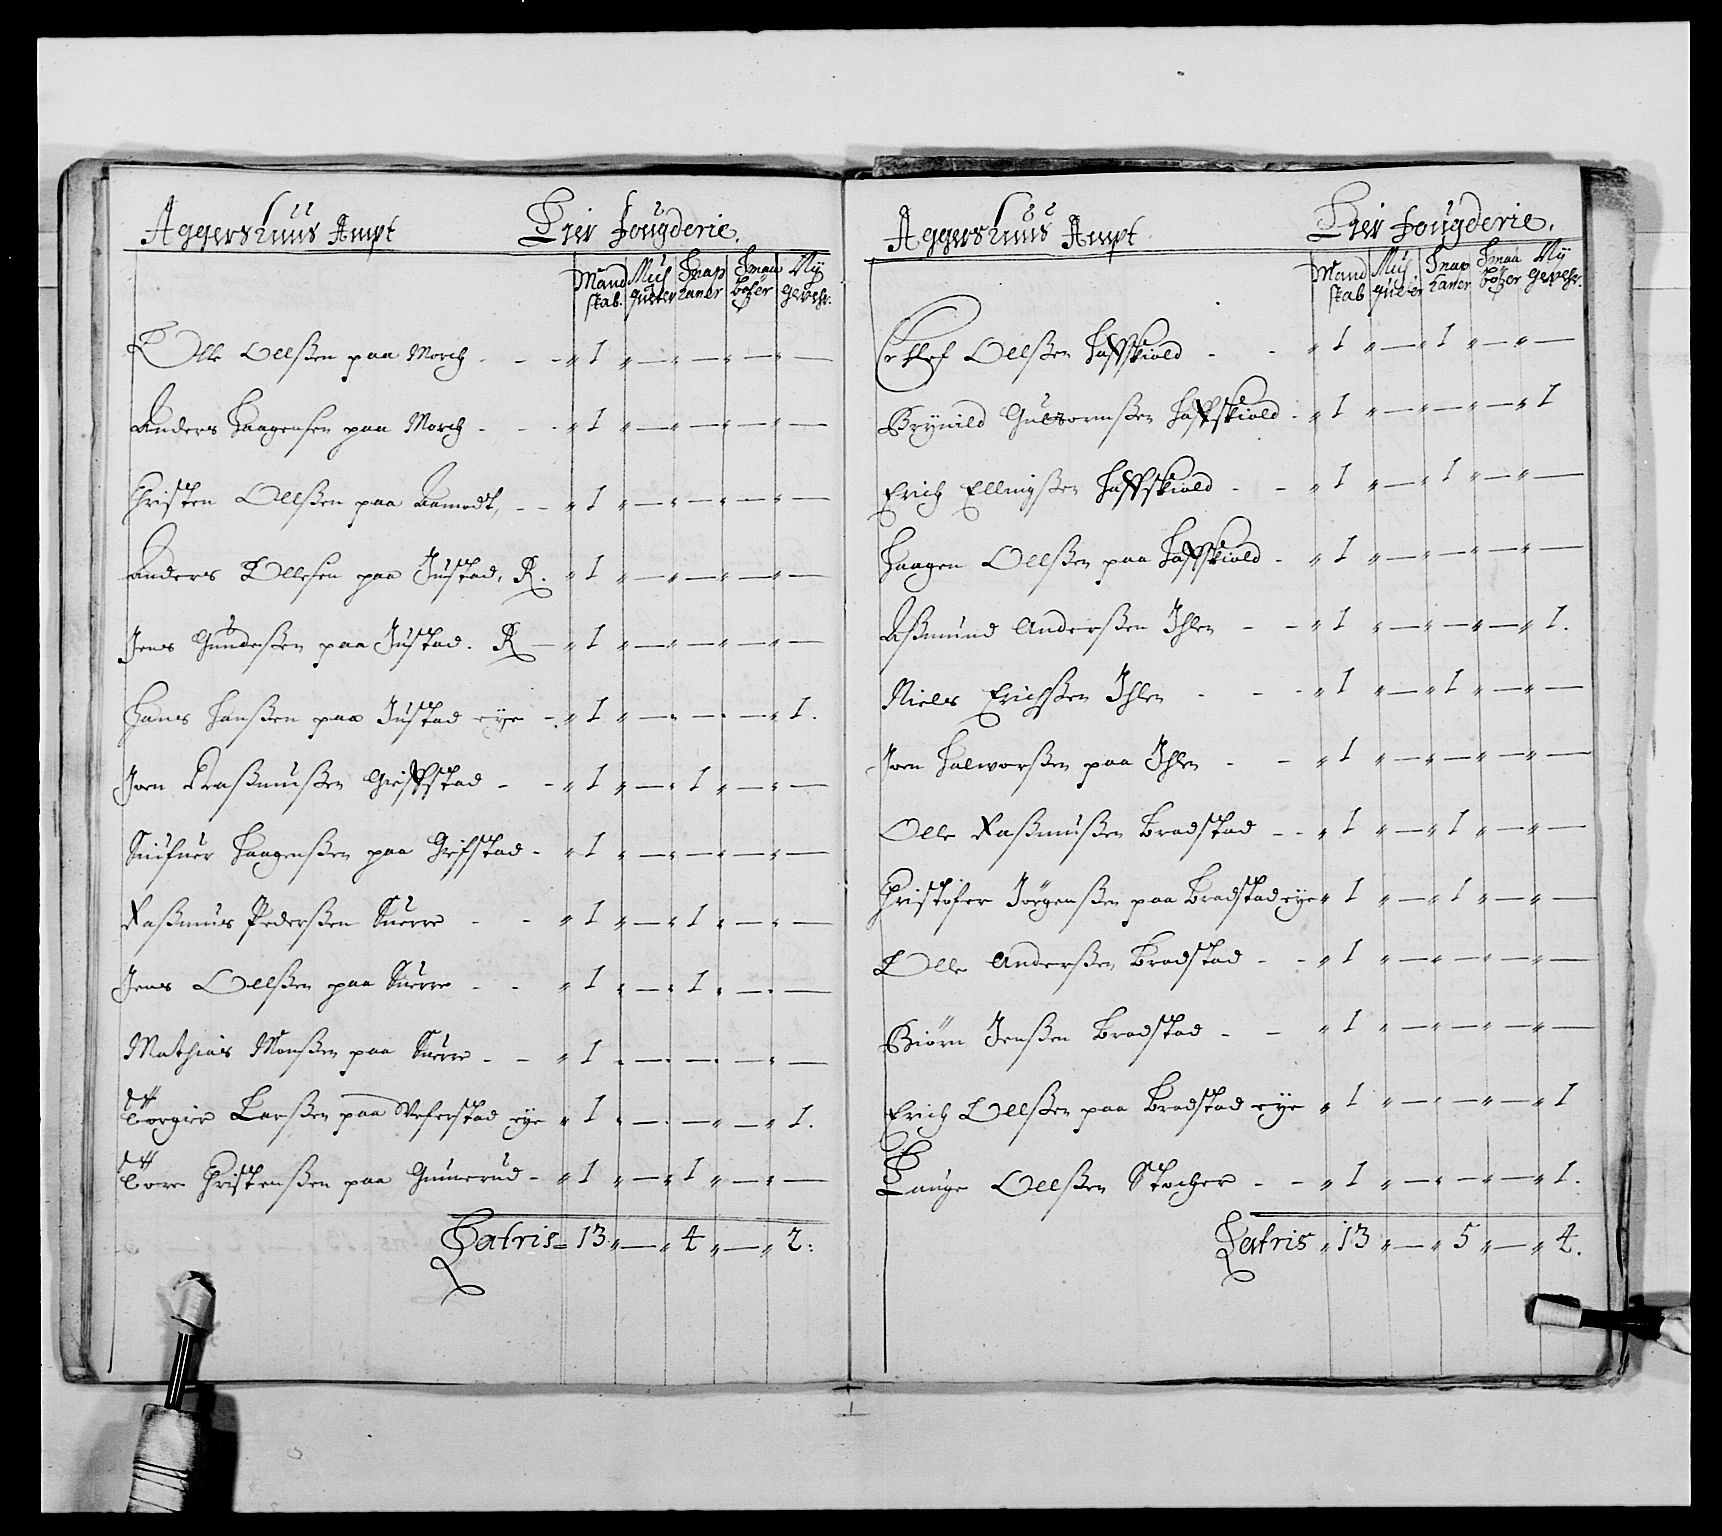 Aggershuus Ampt Eger Fougderie.
Mand skab. Musqueter Snaphaner Smaa bøßer Ny gevehr.
Olle Ollßen paa Morch - - - „ 1 „ — „ — „ — „ —
Anders Haagensen paa Morch - - - „ 1 „ — „ — „ — „ —
Christen Ollßen paa Aamodt, - - „ 1 „ — „ — „ — „ —
Anders Ollesen paa Justad, R. „ 1 „ — „ — „ — „ —
Jens Gundersßen paa Justad. R — „ 1 „ — „ — „ — „ —
Hans Hansßen paa Justad eye - „ 1 „ — „ — „ — „ 1.
Joen Raßmusßen Griffstad - - „ 1 „ — „ 1 „ — „ —
Haagenßen paa Grifstad - „ 1 „ — „ — „ — „ —
Raßmus Pederßen Suerre - - „ 1 „ — „ 1 „ — „ —
Jens Ollßen paa Suerre - - „ 1 „ — „ 1 „ — „ —
Mathias Monßen paa Suerre - - „ 1 „ — „ — „ — „ —
Torgier Larßen paa Veferstad eye „ 1 „ — „ — „ — „ 1.
Tore Christenßen paa Gunnerud - „ 1 „ — „ 1 „ — „ —
Latris - 13 „ — „ 4 „ — „ 2:
Aggershuus Ampt Eger Fougderie.
Mand skab Musqueter Snaphaner Smaa bøßer Ny gevehr.
Ollßen Haffskiold - - „ 1 „ — „ 1 „ — „ —
Brynild Gulbormßen Haffskiold - „ 1 „ — „ — „ — „ 1
Erich Ellingßen Haffskiold - - „ 1 „ — „ 1 „ — „ —
Haagen Ollßen paa Haffskiold - „ 1 „ — „ — „ — „ —
Aßmund Anderßen Ihlen - - „ 1 „ — „ — „ — „ 1.
Niels Erichßen Ihlen - - - „ 1 „ — „ 1 „ — „ —
Joen Halworßen paa Ihlen - - „ 1 „ — „ — „ — „ —
Olle Raßmußen Bradstad - - „ 1 „ — „ 1 „ — „ —
Christofer Jörgenßen paa Bradstad eye „ 1 „ — „ 1 „ — „ —
Olle Anderßen Bradstad - - „ 1 „ — „ — „ — „ —
Biørn Jenßen Bradstad - - „ 1 „ — „ — „ — „ —
Erich Ollßen paa Bradstad eye „ 1 „ — „ — „ — „ 1
Lauge Ollßen Stocher - - „ 1 „ — „ — „ — „ 1.
Latris „ 13 „ — „ 5 „ — „ 4.